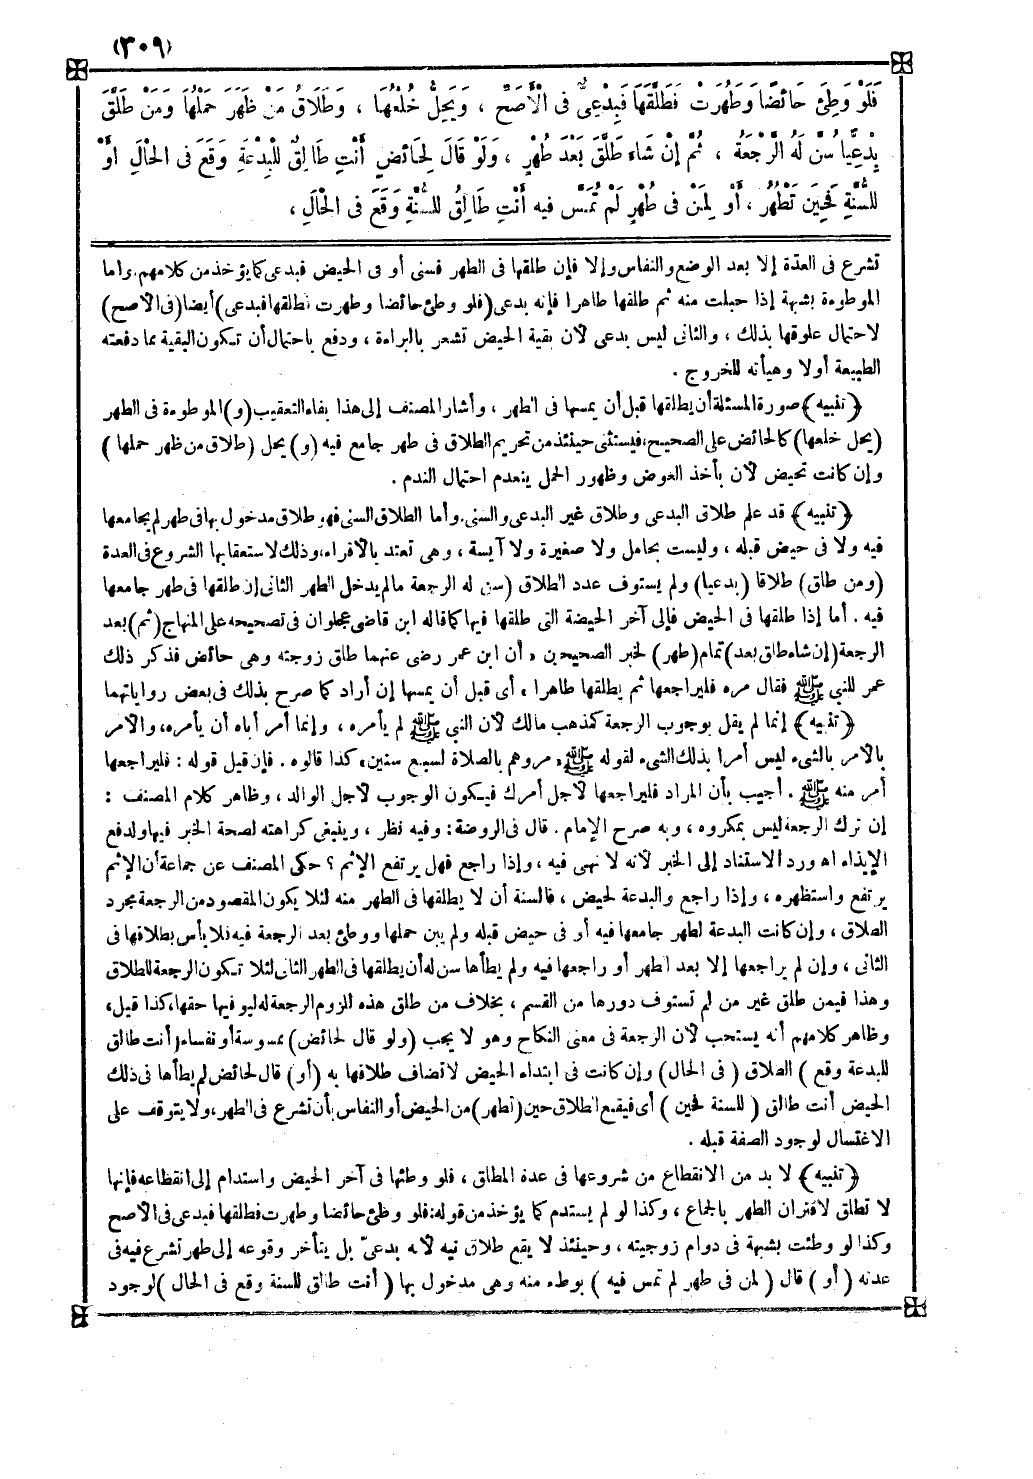 (٣٠٩)
فَلَوْ وَطِئَ حَائِضًا وَطَهُرَتْ فَطَلَّقَهَا فَبِدْعِىٌّ فى الْأَصَحِّ ، وَيَحِلُّ خُلْعُهَا ، وَطَلَاقُ مَنْ ظَهَرَ حَمْلُهَا وَمَنْ طَلَّقَ
بِدْعِيًّا سُنَّ لَهُ الرَّجْعَةُ ، ثُمَّ إنْ شَاءَ طَلَّقَ بَعْدَ طُهْرٍ ، وَلَوْ قَالَ لِحَائضٍ أَنْتِ طَالِقٌ لِلْبِدْعَةِ وَقَعَ فى الْحَالِ أوْ
لِلسُّنَّةِ فَحِينَ تَطْهُرُ ، أَوْ لِمَنْ فى طُهْرٍ لَمْ تُمَسَّ فيه أَنْتِ طَالِقٌ لِلسُّنَّةِ وَقَعَ فى الْحَالِ ،
تشرع فى العدة إلا بعد الوضع والنفاس وإلا فإن طلقها فى الطهر فسنى أو فى الحيض فبدعى كما يؤخذ من كلامهم. وأما
الموطوءة بشبهة إذا حبلت منه ثم طلقها طاهرا فإنه بدعى (فلو وطئ حائضا وطهرت فطلقها فبدعى) أيضا (فى الأصح)
لاحتمال علوقها بذلك ، والثانى ليس بدعى لأن بقية الحيض تشعر بالبراءة ، ودفع باحتمال أن تكون البقية مما دفعته
الطبيعة أولا وهيأته للخروج .
﴿تنبيه﴾ صورة المسئلة أن يطلقها قبل أن يمسها فى الطهر ، وأشار المصنف إلى هذا بفاء التعقيب (و) الموطوءة فى الطهر
(يحل خلعها) كالحائض على الصحيح، فيستثنى حينئذ من تحريم الطلاق فى طهر جامع فيه (و) يحل (طلاق من ظهر حملها )
وإن كانت تحيض لأن بأخذ العوض وظهور الحمل ينعدم احتمال الندم .
﴿تنبيه﴾ قد علم طلاق البدعى وطلاق غير البدعى والسنى. وأما الطلاق السنى فهو طلاق مدخول بها فى طهر لم يجامعها
فيه ولا فى حيض قبله ، وليست بحامل ولا صغيرة ولا آيسة ، وهى تعتد بالأقراء، وذلك لاستعقابها الشروع فى العدة
(ومن طلق) طلاقا (بدعيا) ولم يستوف عدد الطلاق (سن له الرجعة ما لم يدخل الطهر الثانى إن طلقها فى طهر جامعها
فيه . أما إذا طلقها فى الحيض فإلى آخر الحيضة التى طلقها فيها كما قاله ابن قاضى عجلوان فى تصحيحه على المنهاج (ثم) بعد
الرجعة (إن شاء طلق بعد) تمام (طهر) لخبر الصحيحين « أن ابن عمر رضى عنهما طلق زوجته وهى حائض فذكر ذلك
عمر للنبى ﷺ فقال مره فليراجعها ثم يطلقها طاهرا » أى قبل أن يمسها إن أراد كما صرح بذلك فى بعض رواياتهما
﴿تنبيه﴾ إنما لم يقل بوجوب الرجعة كمذهب مالك لأن النبى ﷺ لم يأمره ، وإنما أمر أباه أن يأمره، والأمر
بالأمر بالشىء ليس أمرا بذلك الشىء لقوله ﷺ «مروهم بالصلاة لسبع سنين» كذا قالوه . فإن قيل قوله : فليراجعها
أمر منه ﷺ . أجيب بأن المراد فليراجعها لأجل أمرك فيكون الوجوب لأجل الوالد ، وظاهر كلام المصنف :
إن ترك الرجعة ليس بمكروه ، وبه صرح الإمام . قال فى الروضة : وفيه نظر ، وينبغى كراهته لصحة الخبر فيها ولدفع
الإيذاء اه ورد الاستناد إلى الخبر لأنه لا نهى فيه ، وإذا راجع فهل يرتفع الإثم ؟ حكى المصنف عن جماعة أن الإثم
يرتفع واستظهره ، وإذا راجع والبدعة لحيض ، فالسنة أن لا يطلقها فى الطهر منه لئلا يكون المقصود من الرجعة مجرد
الطلاق ، وإن كانت البدعة لطهر جامعها فيه أو فى حيض قبله ولم يبن حملها ووطئ بعد الرجعة فيه فلا بأس بطلاقها فى
الثانى ، وإن لم يراجعها إلا بعد الطهر أو راجعها فيه ولم يطأها سن له أن يطلقها فى الطهر الثانى لئلا تكون الرجعة للطلاق
وهذا فيمن طلق غير من لم تستوف دورها من القسم ، بخلاف من طلق هذه للزوم الرجعة له ليوفيها حقها، كذا قيل،
وظاهر كلامهم أنه يستحب لأن الرجعة فى معنى النكاح وهو لا يجب (ولو قال لحائض) ممسوسة أو نفساء (أنت طالق
للبدعة وقع ) الطلاق ( فى الحال) وإن كانت فى ابتداء الحيض لاتصاف طلاقها به (أو) قال لحائض لم يطأها فى ذلك
الحيض أنت طالق ( للسنة فحين ) أى فيقع الطلاق حين (تطهر) من الحيض أو النفاس بأن تشرع فى الطهر، ولا يتوقف على
الاغتسال لوجود الصفة قبله .
﴿تنبيه﴾ لا بد من الانقطاع من شروعها فى عدة المطلق ، فلو وطئها فى آخر الحيض واستدام إلى انقطاعه فإنها
لا تطلق لاقتران الطهر بالجماع ، وكذا لو لم يستدم كما يؤخذ من قوله: فلو وطئ حائضا وطهرت فطلقها فبدعى فى الأصح
وكذا لو وطئت بشبهة فى دوام زوجيته ، وحينئذ لا يقع طلاق فيه لأنه بدعىّ بل يتأخر وقوعه إلى طهر تشرع فيه فى
عدته ( أو ) قال ( لمن فى طهر لم تمس فيه ) بوطء منه وهى مدخول بها ( أنت طالق للسنة وقع فى الحال ) لوجود